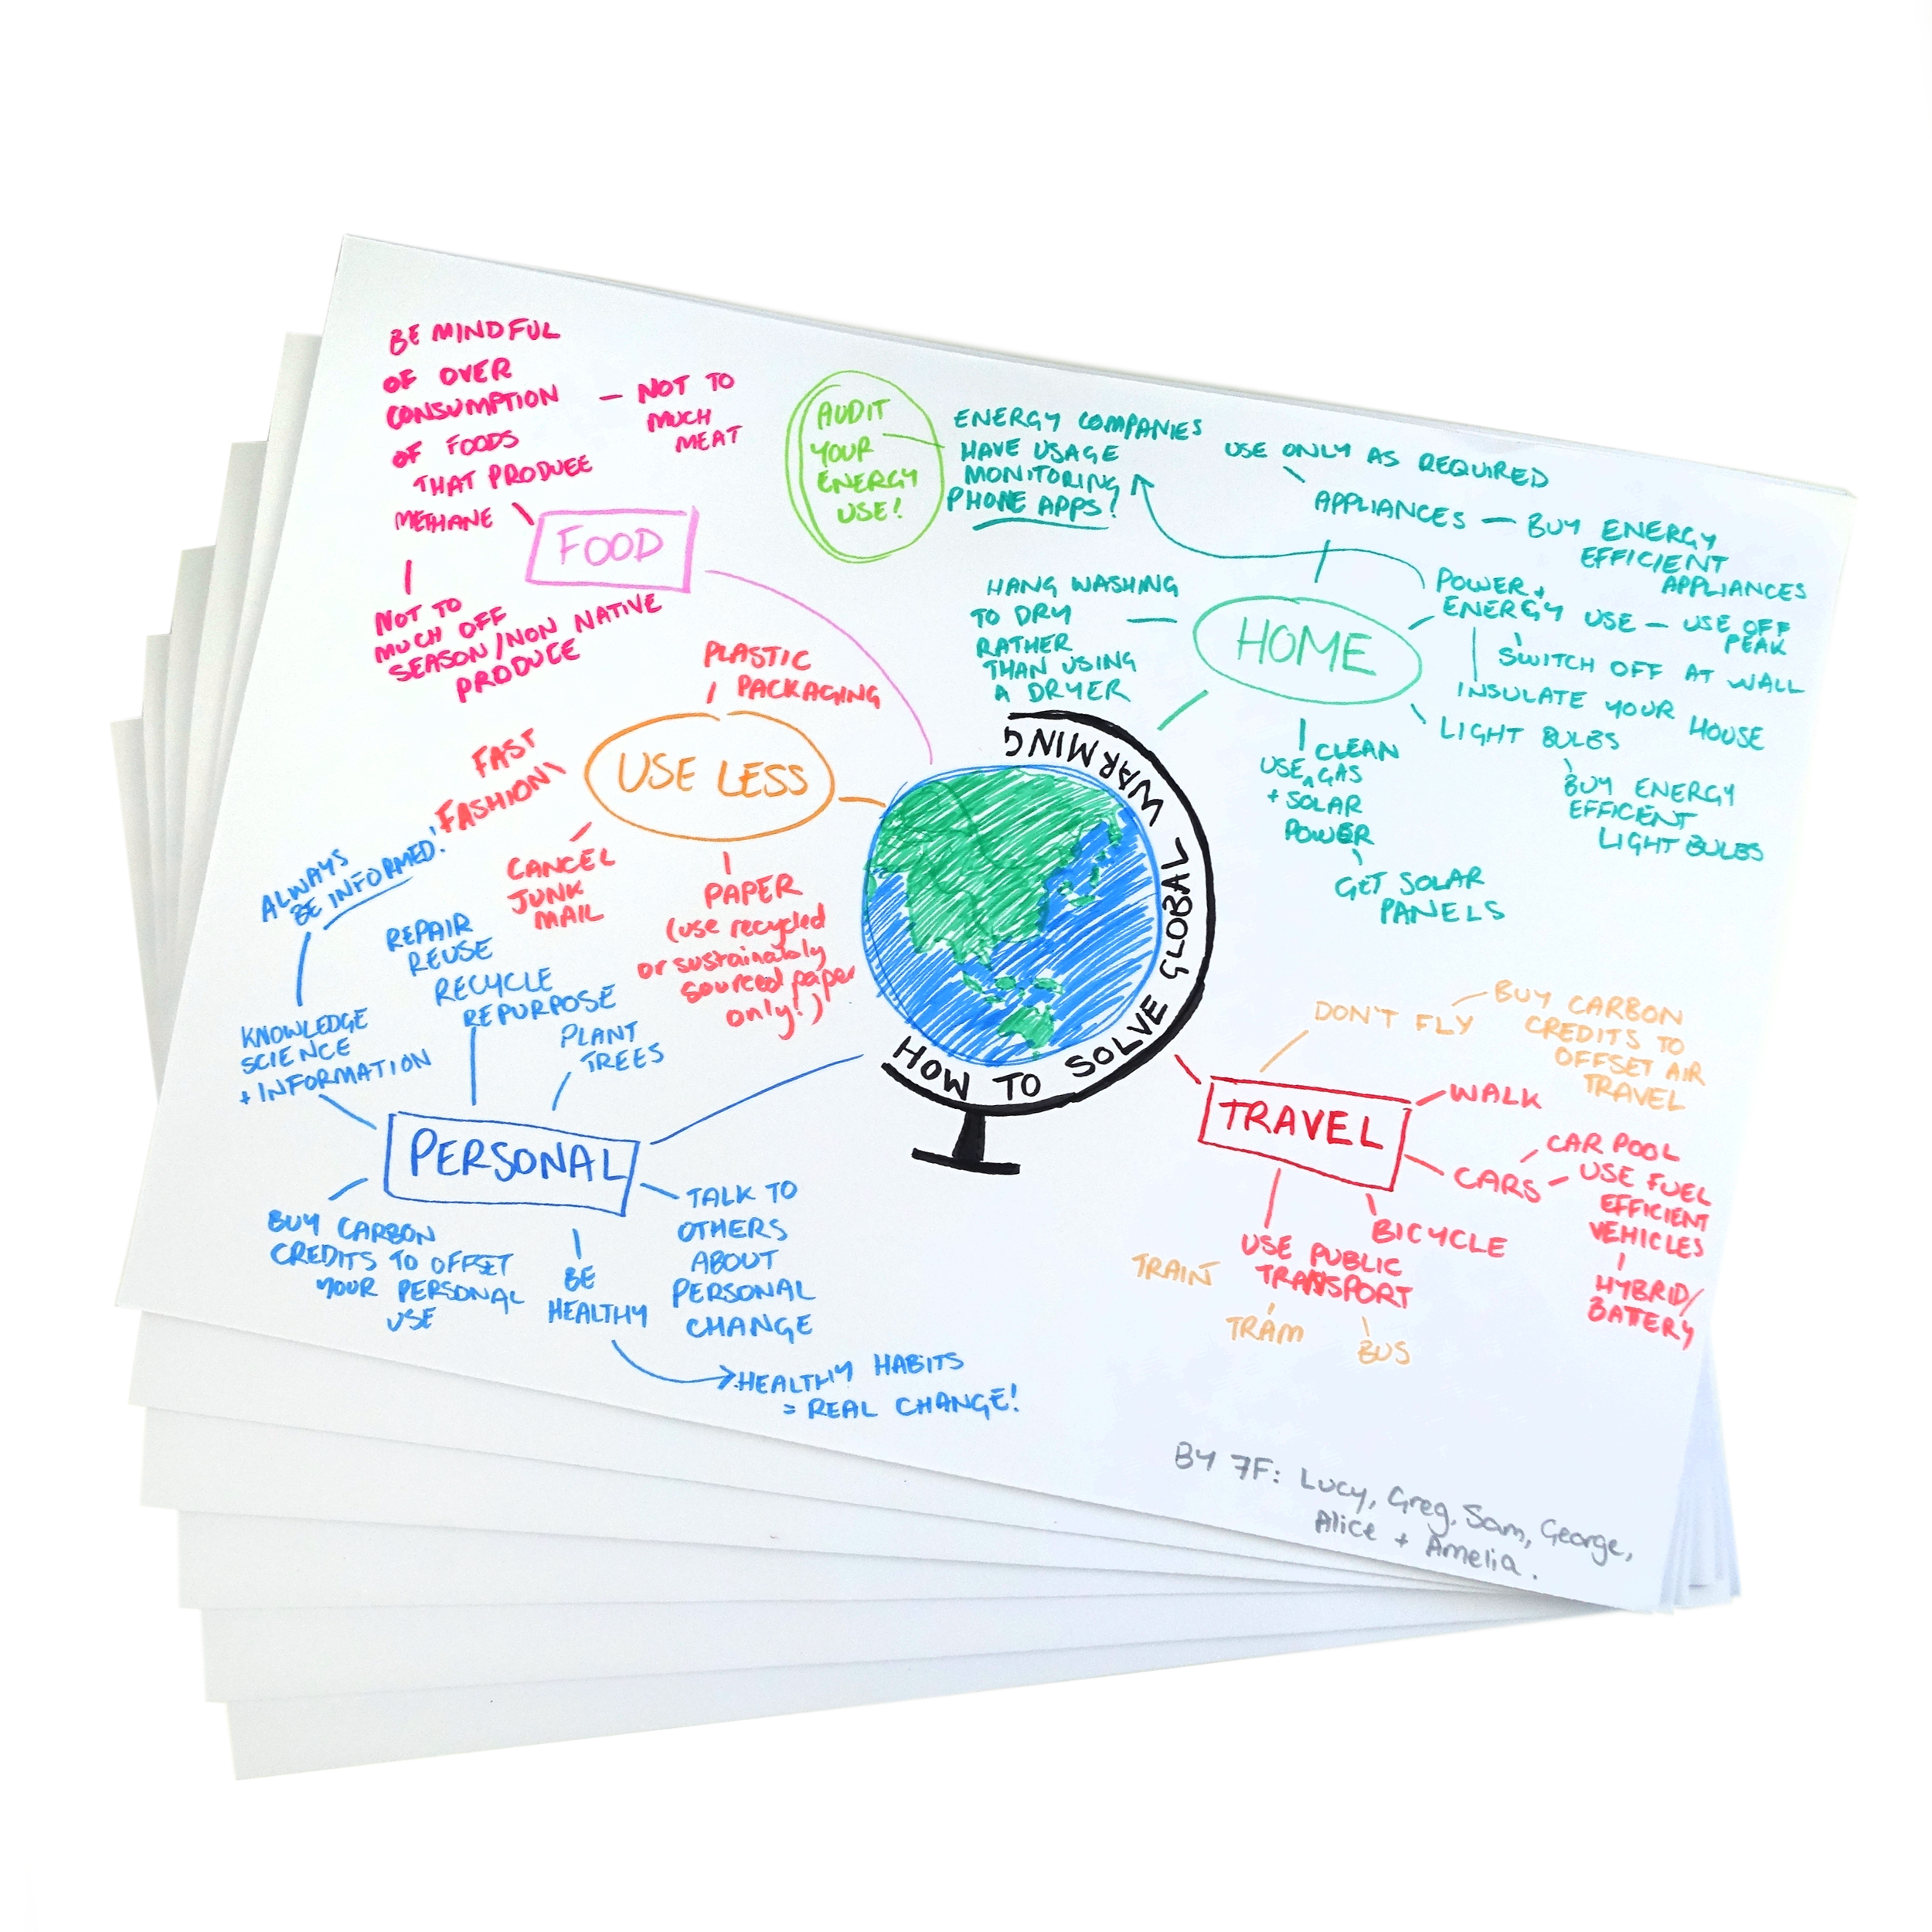 BE MINDFUL
OF OVER
CONSUMPTION
OF FOODS
THAT PRODUCE
METHANE
NOT TO
MUCH
MEAT
FOOD
NOT TO
MUCH OFF
SEASON/NON NATIVE
PRODUCE
AUDIT
YOUR
ENERGY
USE!
ENERGY COMPANIES
HAVE USAGE
MONITORING
PHONE APPS!
USE ONLY AS REQUIRED
APPLIANCES
BUY ENERGY
EFFICIENT
APPLIANCES
HANG WASHING
TO DRY
RATHER
THAN USING
A DRYER
HOME
POWER +
ENERGY USE
USE OFF
PEAK
SWITCH OFF AT WALL
INSULATE YOUR HOUSE
LIGHT BULBS
BUY ENERGY
EFFICENT
LIGHT BULBS
CLEAN
USE GAS
+ SOLAR
POWER
GET SOLAR
PANELS
PLASTIC
PACKAGING
USE LESS
FAST
FASHION
CANCEL
JUNK
MAIL
PAPER
(use recycled
or sustainably
sourced paper
only!)
HOW TO SOLVE GLOBAL WARMING
ALWAYS
BE INFORMED!
KNOWLEDGE
SCIENCE
+ INFORMATION
REPAIR
REUSE
RECYCLE
REPURPOSE
PLANT
TREES
PERSONAL
BUY CARBON
CREDITS TO OFFSET
YOUR PERSONAL
USE
BE
HEALTHY
HEALTHY HABITS
= REAL CHANGE!
TALK TO
OTHERS
ABOUT
PERSONAL
CHANGE
DON'T FLY
BUY CARBON
CREDITS TO
OFFSET AIR
TRAVEL
TRAVEL
WALK
CARS
CAR POOL
USE FUEL
EFFICIENT
VEHICLES
HYBRID/
BATTERY
BICYCLE
USE PUBLIC
TRANSPORT
TRAIN
TRAM
BUS
BY 7F: Lucy, Greg, Sam, George,
Alice + Amelia.